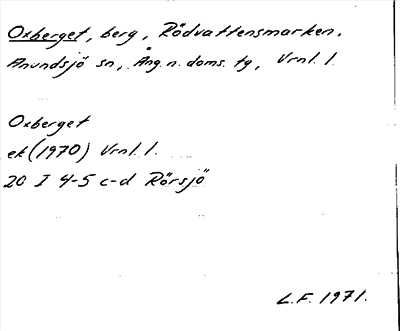 Oxberget, berg, Rödvattensmarken.
Anundsjö sn, Ång. n. doms. tg, Vrnl. l.
Oxberget
ek (1970) Vrnl. l.
20 I 4-5 c-d Rörsjö
L.F. 1971.